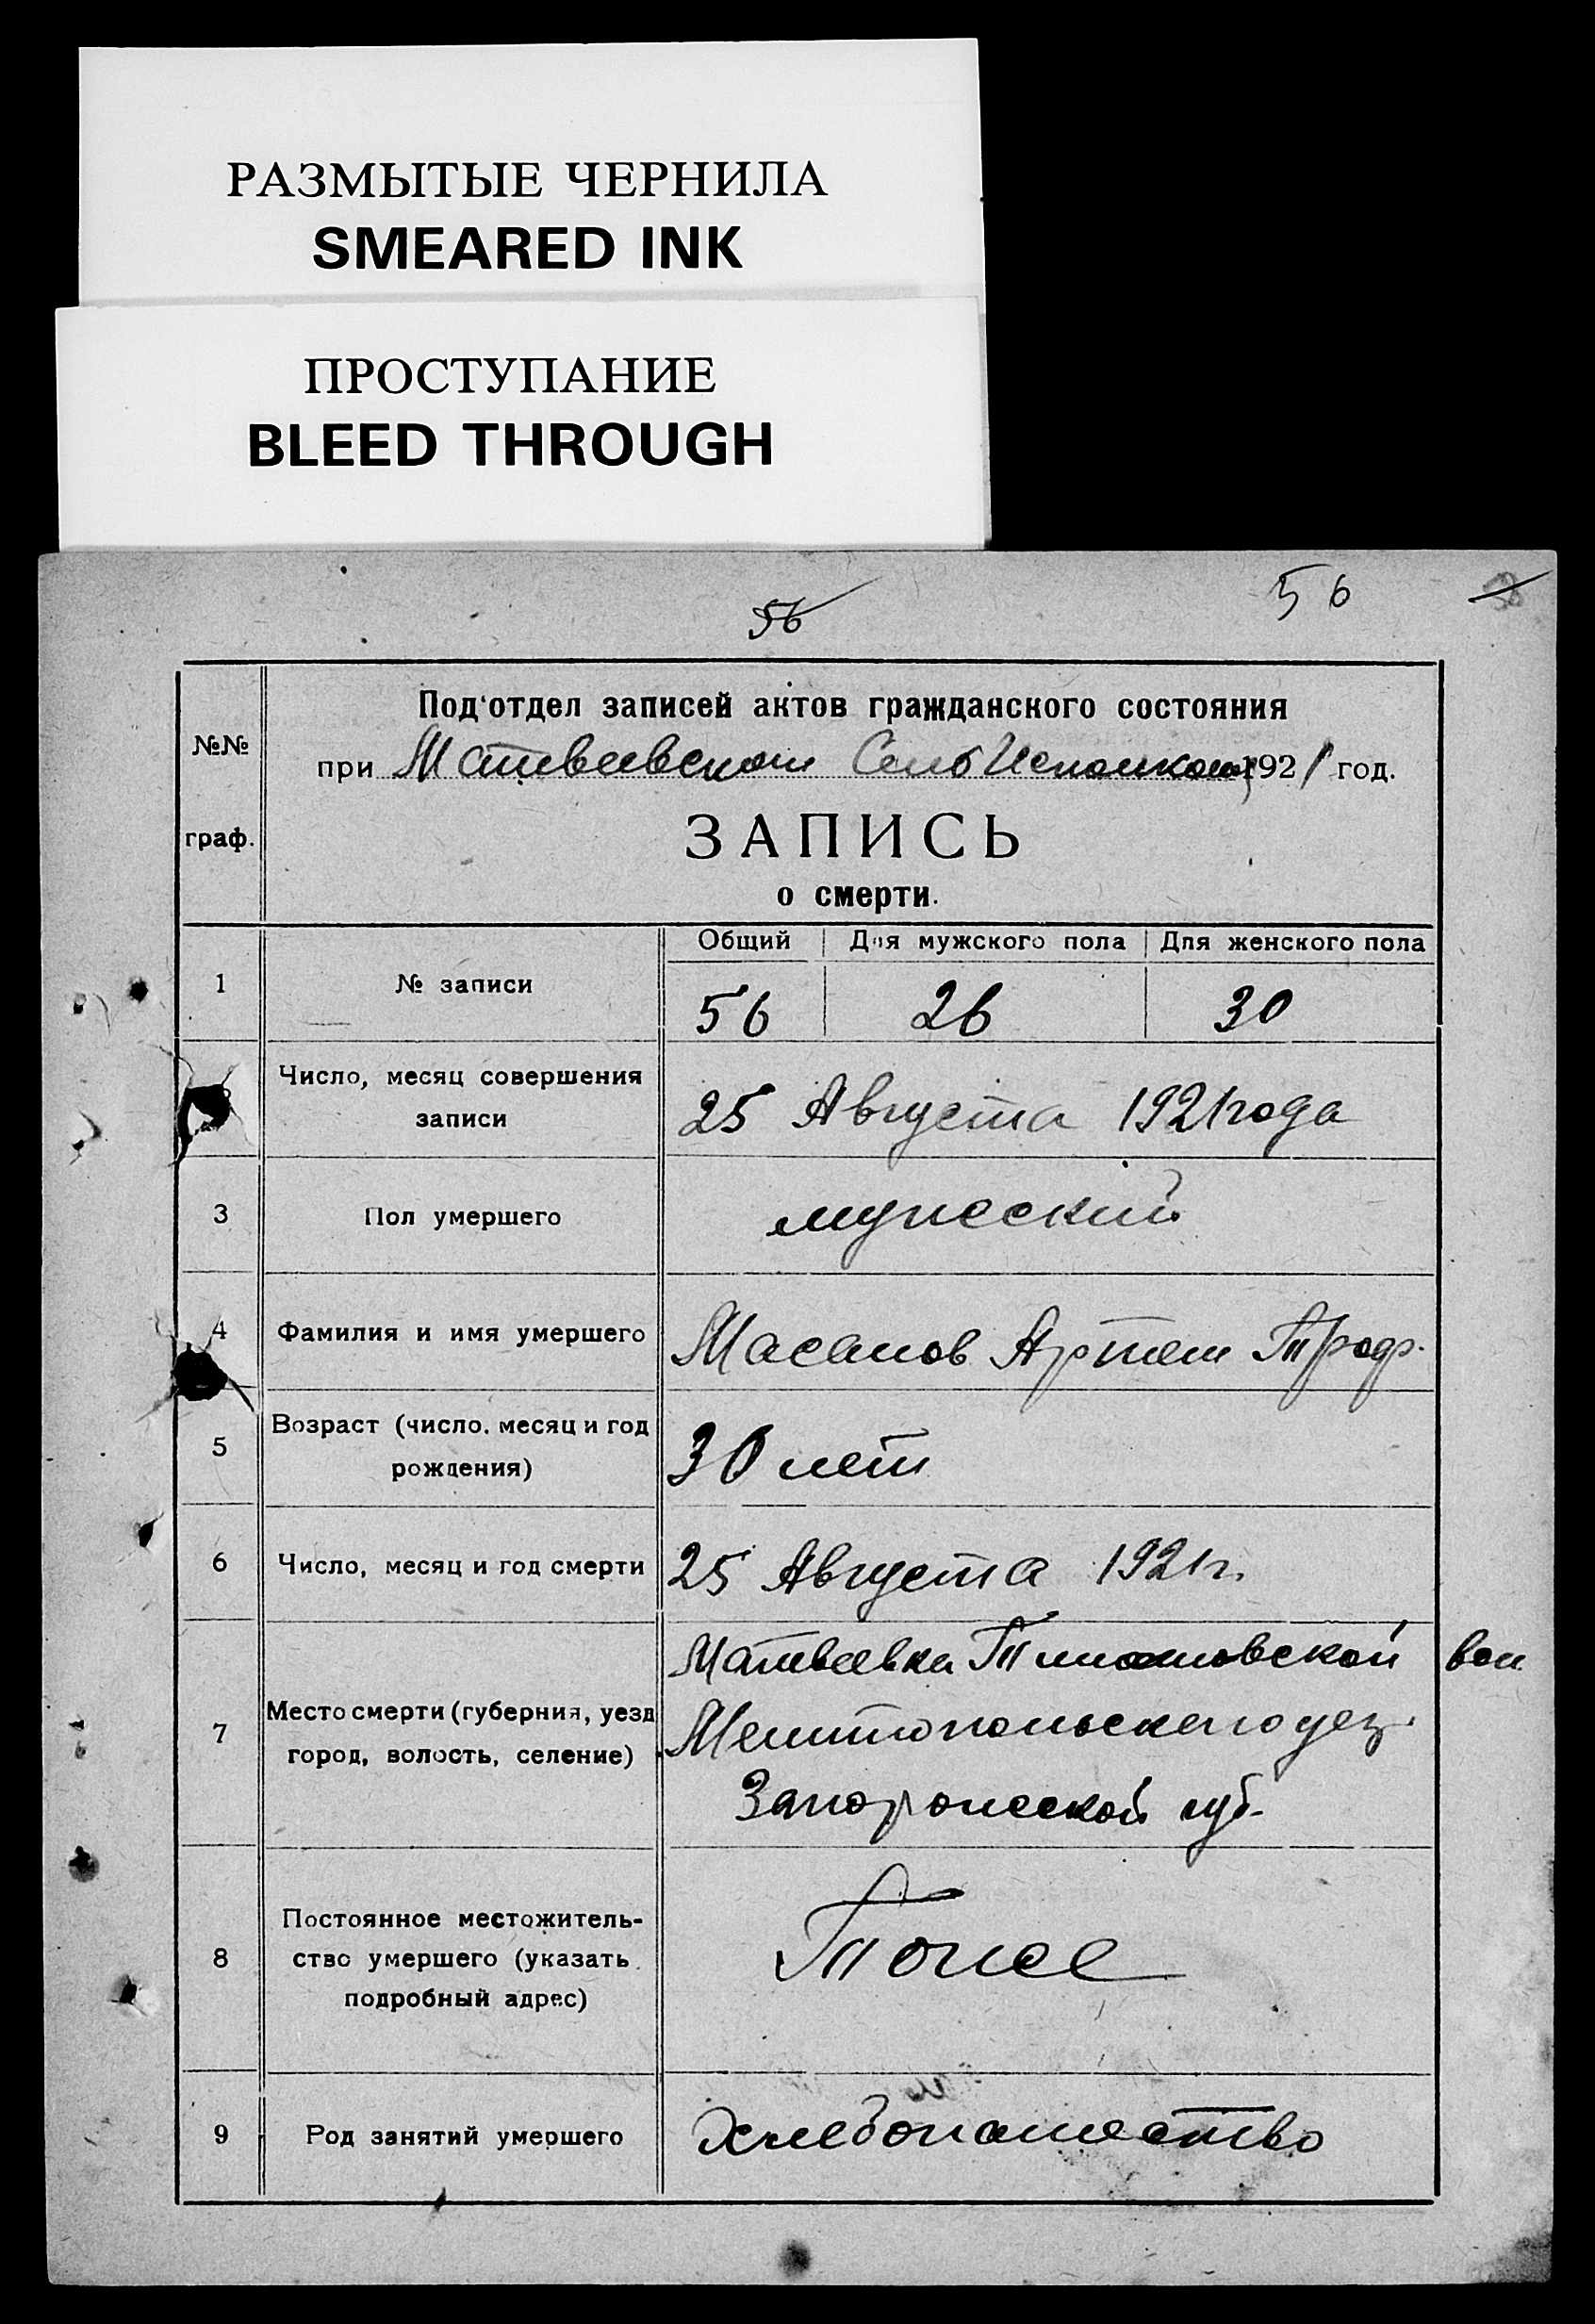 РАЗМЫТЫЕ ЧЕРНИЛА
SMEARED INK
ПРОСТУПАНИЕ
BLEED THROUGH
56
56
№№ граф.
Под‘отдел записей актов гражданского состояния
при Матвеевском СелоИсполкоме 1921 год.
ЗАПИСЬ
о смерти.
Общий Для мужского пола Для женского пола
1 № записи 56 26 30
Число, месяц совершения
записи
25 Августа 1921 года
3 Пол умершего мужеский
4 Фамилия и имя умершего Масалов Артем Троф.
5 Возраст (число, месяц и год
рождения)
30 лет
6 Число, месяц и год смерти 25 Августа 1921 г.
7 Место смерти (губерния, уезд
город, волость, селение)
Матвеевка вол
Мелитопольского уез.
Запорожеской губ.
8 Постоянное местожитель-
ство умершего (указать
подробный адрес)
Тоже
9 Род занятий умершего Хлебопашество